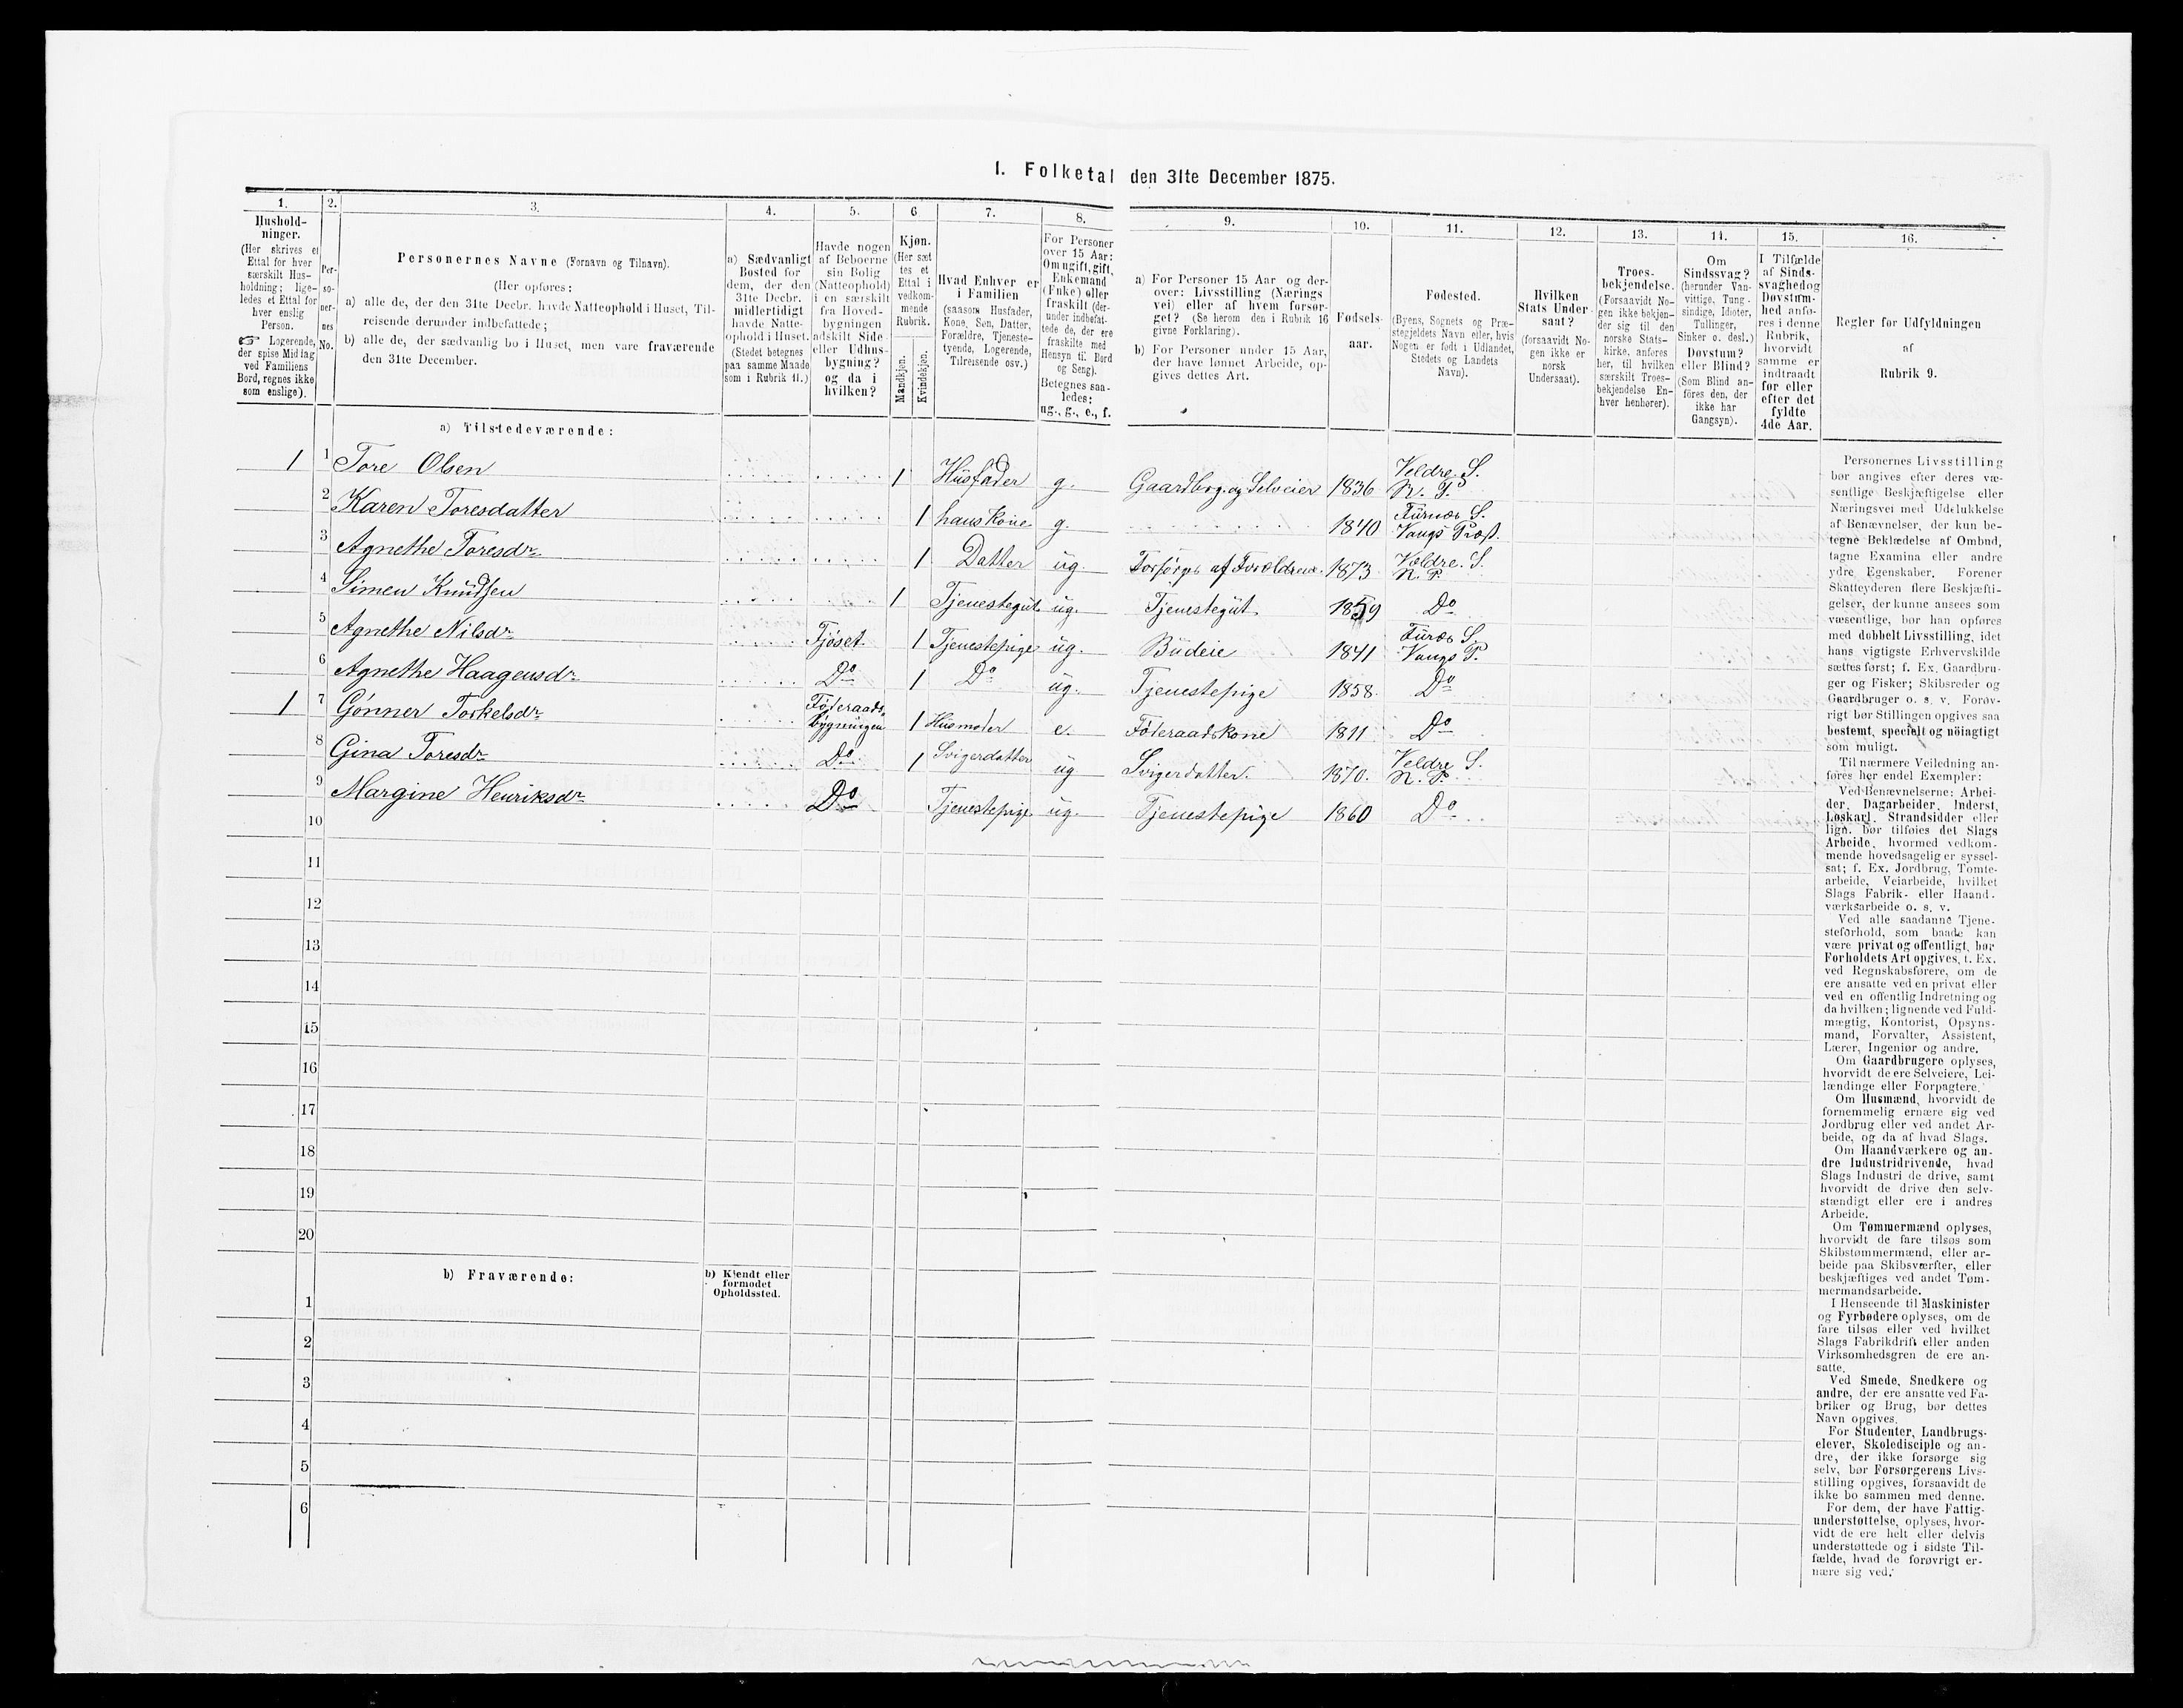 I. Folketal den 31te December 1875.
1. 2. 3. 4. 5. 6 7. 8. 9. 10. 11. 12. 13. 14. 15. 16.
Hushold-
ninger.
(Her skrives et
Ettal for hver
særskilt Hus-
holdning; lige-
ledes et Ettal for
hver enslig
Person.
☞ Logerende,
der spise Middag
ved Familiens
Bord, regnes ikke
som enslige).
Per-
so-
ner-
nes
No.
Personernes Navne (Fornavn og Tilnavn).
(Her opføres:
a) alle de, der den 31te Decbr. havde Natteophold i Huset, Til-
reisende derunder indbefattede;
b) alle de, der sædvanlig bo i Huset, men vare fraværende
den 31te December.
a) Sædvanligt
Bosted for
dem, der den
31te Decbr.
midlertidigt
havde Natte-
ophold i Huset.
(Stedet betegnes
paa samme Maade
som i Rubrik 11.)
Havde nogen
af Beboerne
sin Bolig
(Natteophold)
i en særskilt
fra Hoved-
bygningen
adskilt Side-
eller Udhus-
bygning?
og da i
hvilken?
Kjøn.
(Her sæt
tes et
Ettal i
vedkom-
mende
Rubrik.
Mandkjøn.
Kvindekjøn.
Hvad Enhver er
i Familien
(saasom Husfader,
Kone, Søn, Datter,
Forældre, Tjeneste-
tyende, Logerende,
Tilreisende osv.)
For Personer
over 15 Aar:
Om ugift, gift,
Enkemand
(Enke) eller
fraskilt (der-
under indbefat-
tede de, der ere
fraskilte med
Hensyn til Bord
og Seng).
Betegnes saa-
ledes:
ug., g., e., f.
a) For Personer 15 Aar og der-
over: Livsstilling (Nærings
vei) eller af hvem forsør-
get? (Se herom den i Rubrik 16
givne Forklaring).
b) For Personer under 15 Aar,
der have lønnet Arbeide, op-
gives dettes Art.
Fødsels-
aar.
Fødested.
(Byens, Sognets og Præ-
stegjeldets Navn eller, hvis
Nogen er født i Udlandet,
Stedets og Landets
Navn).
Hvilken
Stats Under-
saat?
(forsaavidt No-
gen ikke er
norsk
Undersaat).
Troes-
bekjendelse.
(Forsaavidt No-
gen ikke bekjen-
der sig til den
norske Stats-
kirke, anføres
her, til hvilken
særskilt Troes-
bekjendelse En-
hver henhører).
Om
Sindssvag?
(herunder Van-
vittige, Tung-
sindige, Idioter,
Tullinger,
Sinker o. desl.)
Døvstum?
eller Blind?
(Som Blind an-
føres den, der
ikke har
Gangsyn).
I Tilfælde
af Sinds-
svaghed og
Døvstum-
hed anfø-
res i denne
Rubrik,
hvorvidt
samme er
indtraadt
før eller
efter det
fyldte
4de Aar.
Regler for Udfyldningen
af
Rubrik 9.
a) Tilstedeværende:
1 1 Tore Olsen 1 Husfader g. Gaardbrg. og Selveier 1836 Veldre. S. N. P.
2 Karen Toresdatter 1 hans Kone g. 1840 Furnæs S. Vangs Præst.
3 Agnethe Toresdr 1 Datter ug. Forsörges af Forældrene. 1873 Veldre. S. N. P.
4 Simen Knudsen 1 Tjenestegut ug. Tjenestegut. 1859 Do
5 Agnethe Nilsdr Fjöset. 1 Tjenestepige ug. Budeie 1841 Furæs S. Vangs P.
6 Agnethe Haagensdr Do 1 Do ug. Tjenestepige 1858 Do
1 7 Gønner Torkelsdr Föderaads bygningen 1 Husmoder e. Föderaadskone 1811 Do
8 Gina Toresdr Do 1 Svigerdatter ug Svigerdatter. 1870. Veldre S. N. P.
9 Margine Henriksdr Do Tjenestepige ug. Tjenestepige 1860 Do
10
11
12
13
14
15
16
17
18
19
20
b) Fraværende: b) Kjendt eller
formodet
Opholdssted.
1
2
3
4
5
6
Personernes Livsstilling
bør angives efter deres væ-
sentlige Beskjæftigelse eller
Næringsvei med Udelukkelse
af Benævnelser, der kun be-
tegne Beklædelse af Ombud,
tagne Examina eller andre
ydre Egenskaber. Forener
Skatteyderen flere Beskjæfti-
gelser, der kunne ansees som
væsentlige, bør han opføres
med dobbelt Livsstilling, idet
hans vigtigste Erhvervskilde
sættes først; f. Ex. Gaardbru-
ger og Fisker; Skibsreder og
Gaardbruger o. s. v. Forøv-
rigt bør Stillingen opgives saa
bestemt, specielt og nöiagtigt
som muligt.
Til nærmere Veiledning an-
føres her endel Exempler:
Ved Benævnelserne: Arbei-
der, Dagarbeider, Inderst,
Løskarl, Strandsidder eller
lign. bør tilføies det Slags
Arbeide, hvormed vedkom-
mende hovedsagelig er syssel-
sat; f. Ex. Jordbrug, Tomte-
arbeide, Veiarbeide, hvilket
Slags Fabrik- eller Haand-
værksarbeide o. s. v.
Ved alle saadanne Tjene-
steforhold, som baade kan
være privat og offentligt, bør
Forholdets Art opgives, t. Ex.
ved Regnskabsførere, om de
ere ansatte ved en privat eller
ved en offentlig Indretning og
da hvilken; lignende ved Fuld-
mægtig, Kontorist, Opsyns-
mand, Forvalter, Assistent,
Lærer, Ingeniør og andre.
Om Gaardbrugere oplyses,
hvorvidt de ere Selveiere, Lei-
lændinge eller Forpagtere.
Om Husmænd, hvorvidt de
fornemmelig ernære sig ved
Jordbrug eller ved andet Ar-
beide, og da af hvad Slags.
Om Haandværkere og an-
dre Industridrivende, hvad
Slags Industri de drive, samt
hvorvidt de drive den selv-
stændigt eller ere i andres
Arbeide.
Om Tømmermænd oplyses,
hvorvidt de fare tilsøs som
Skibstømmermænd, eller ar-
beide paa Skibsværfter, eller
beskjæftiges ved andet Tøm-
mermandsarbeide.
I Henseende til Maskinister
og Fyrbødere oplyses, om de
fare tilsøs eller ved hvilket
Slags Fabrikdrift eller anden
Virksomhedsgren de ere an-
satte.
Ved Smede, Snedkere og
andre, der ere ansatte ved Fa-
briker og Brug, bør dettes
Navn opgives.
For Studenter, Landbrugs-
elever, Skoledisciple og an-
dre, der ikke forsørge sig
selv, bør Forsørgerens Livs-
stilling opgives, forsaavidt de
ikke bo sammen med denne.
For dem, der have Fattig-
understøttelse, oplyses, hvor-
vidt de ere helt eller delvis
understøttede og i sidste Til-
fælde, hvad de forøvrigt er-
nære sig ved.